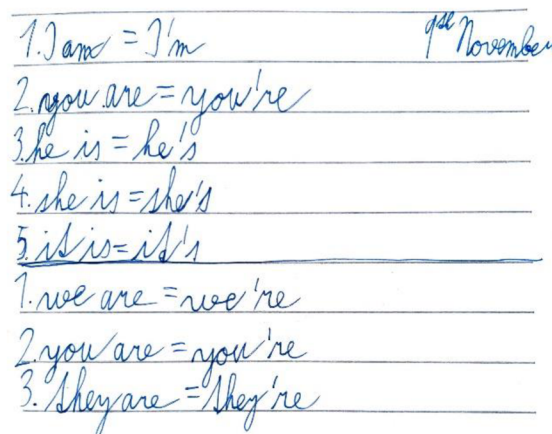 1. I am = I'm
9se November
2. you are = you're
3. he is = he's
4. she is = she's
5. it is = it's
1. we are = we're
2. you are = you're
3. they are = they're